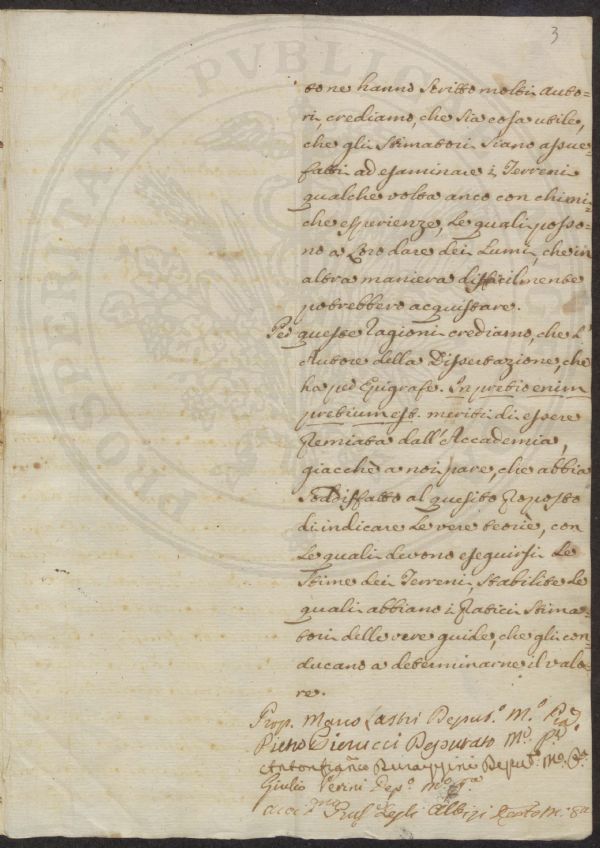 3
to ne hanno scritto molti auto-
ri, crediamo, che sia cosa utile,
che gli Stimatori siano assue-
fatti ad esaminare i Terreni
qualche volta anco con chimi-
che esperienze, le quali posso-
no a Loro dare dei Lumi, che in
altra maniera difficilmente
potrebbero acquistare.
Per queste ragioni crediamo, che l'
Autore della Dissertazione, che
ha per Epigrafe. In pretio enim
pretium est. meriti di essere
Premiata dall'Accademia,
giacchè a noi pare, che abbia
soddisfatto al quesito Proposto
di indicare le vere teorie, con
le quali devono eseguirsi le
Stime dei Terreni, stabilite le
quali abbiano i Pratici Stima-
tori delle vere guide, che gli con-
ducano a determinarne il valo-
re.
Prop. Marco Lastri Deput.º M.º P.ia
Pietro Ferrucci Deputato M.º P.ª
Deput.º M.º P.ª
Giulio Perini Dep.º M.º P.ª
degli Albizi
PROSPERITATI PUBLICAE